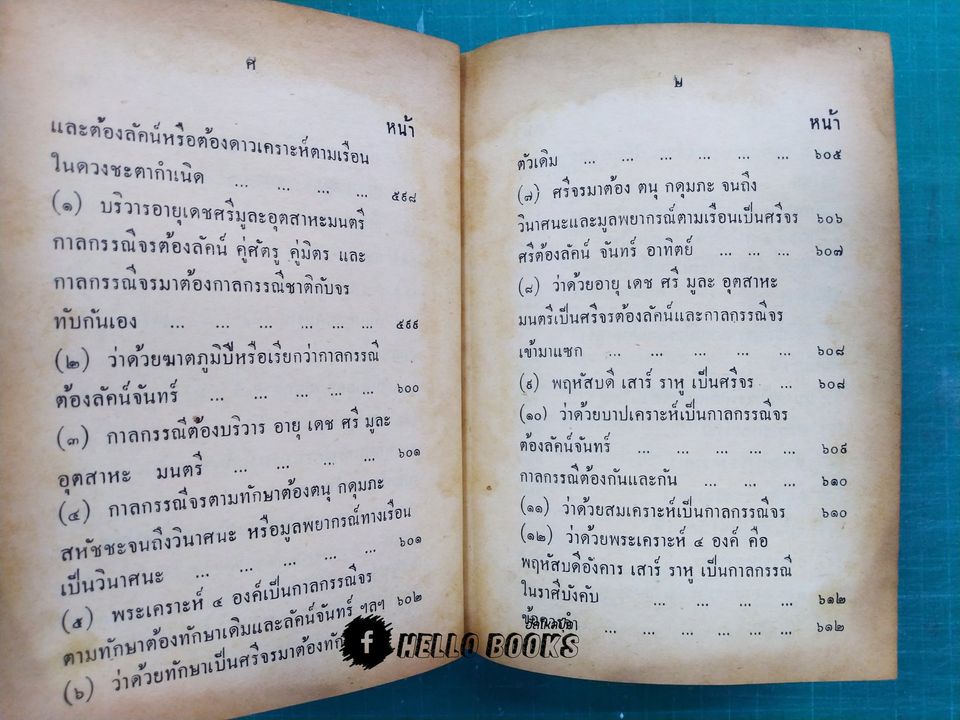 ศ
หน้า
และต้องลัคน์หรือต้องดาวเคราะห์ตามเรือน
ในดวงชะตากำเนิด ... ... ... ... ๕๙๘
(๑) บริวารอายุเดชศรีมูละอุตสาหะมนตรี
กาลกรรณีจรต้องลัคน์ คู่ศัตรู คู่มิตร และ
กาลกรรณีจรมาต้องกาลกรรณีชาติกับจร
ทับกันเอง ... ... ... ... ... ... ๕๙๙
(๒) ว่าด้วยฆาตภูมิบีหรือเรียกว่ากาลกรรณี
ต้องลัคน์จันทร์ ... ... ... ... ... ๖๐๐
(๓) กาลกรรณีต้องบริวาร อายุ เดช ศรี มูละ
อุตสาหะ มนตรี ... ... ... ... ๖๐๑
(๔) กาลกรรณีจรตามทักษาต้องตนุ กดุมภะ
สหัชชะจนถึงวินาศนะ หรือมูลพยากรณ์ทางเรือน
เป็นวินาศนะ ... ... ... ... ... ๖๐๑
(๕) พระเคราะห์ ๔ องค์เป็นกาลกรรณีจร
ตามทักษาต้องทักษาเดิมและลัคน์จันทร์ ฯลฯ ๖๐๒
(๖) ว่าด้วยทักษาเป็นศรีจรมาต้องทัก
๒
หน้า
ตัวเดิม ... ... ... ... ... ... ๖๐๕
(๗) ศรีจรมาต้อง ตนุ กดุมภะ จนถึง
วินาศนะและมูลพยากรณ์ตามเรือนเป็นศรีจร ๖๐๖
ศรีต้องลัคน์ จันทร์ อาทิตย์ ... ... ... ๖๐๗
(๘) ว่าด้วยอายุ เดช ศรี มูละ อุตสาหะ
มนตรีเป็นศรีจรต้องลัคน์และกาลกรรณีจร
เข้ามาแซก ... ... ... ... ... ๖๐๘
(๙) พฤหัสบดี เสาร์ ราหู เป็นศรีจร ... ๖๐๘
(๑๐) ว่าด้วยบาปเคราะห์เป็นกาลกรรณีจร
ต้องลัคน์จันทร์ ... ... ... ... ... ๖๐๙
กาลกรรณีต้องกันและกัน ... ... ... ๖๑๐
(๑๑) ว่าด้วยสมเคราะห์เป็นกาลกรรณีจร ๖๑๐
(๑๒) ว่าด้วยพระเคราะห์ ๔ องค์ คือ
พฤหัสบดีอังคาร เสาร์ ราหู เป็นกาลกรรณี
ในราศีบังคับ ... ... ... ... ๖๑๒
... ... ... ... ... ๖๑๒
f HELLO BOOKS